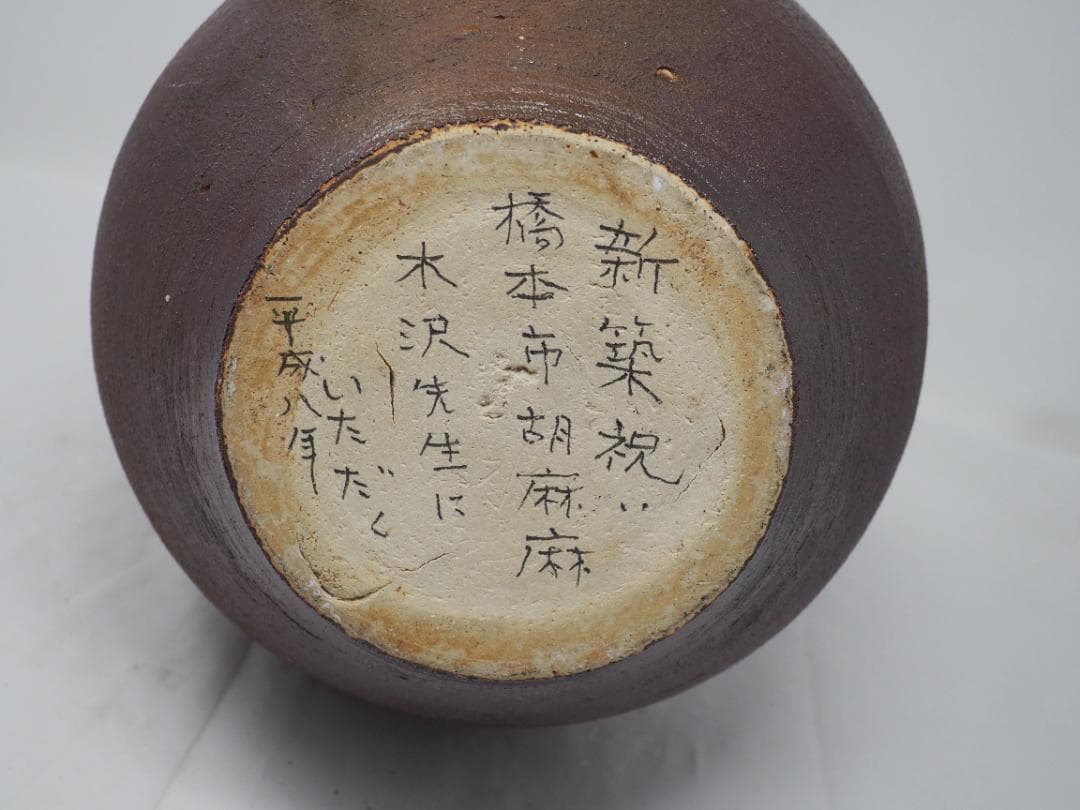 新築祝い
橋本市胡麻麻
木沢先生に
いただく
平成八年